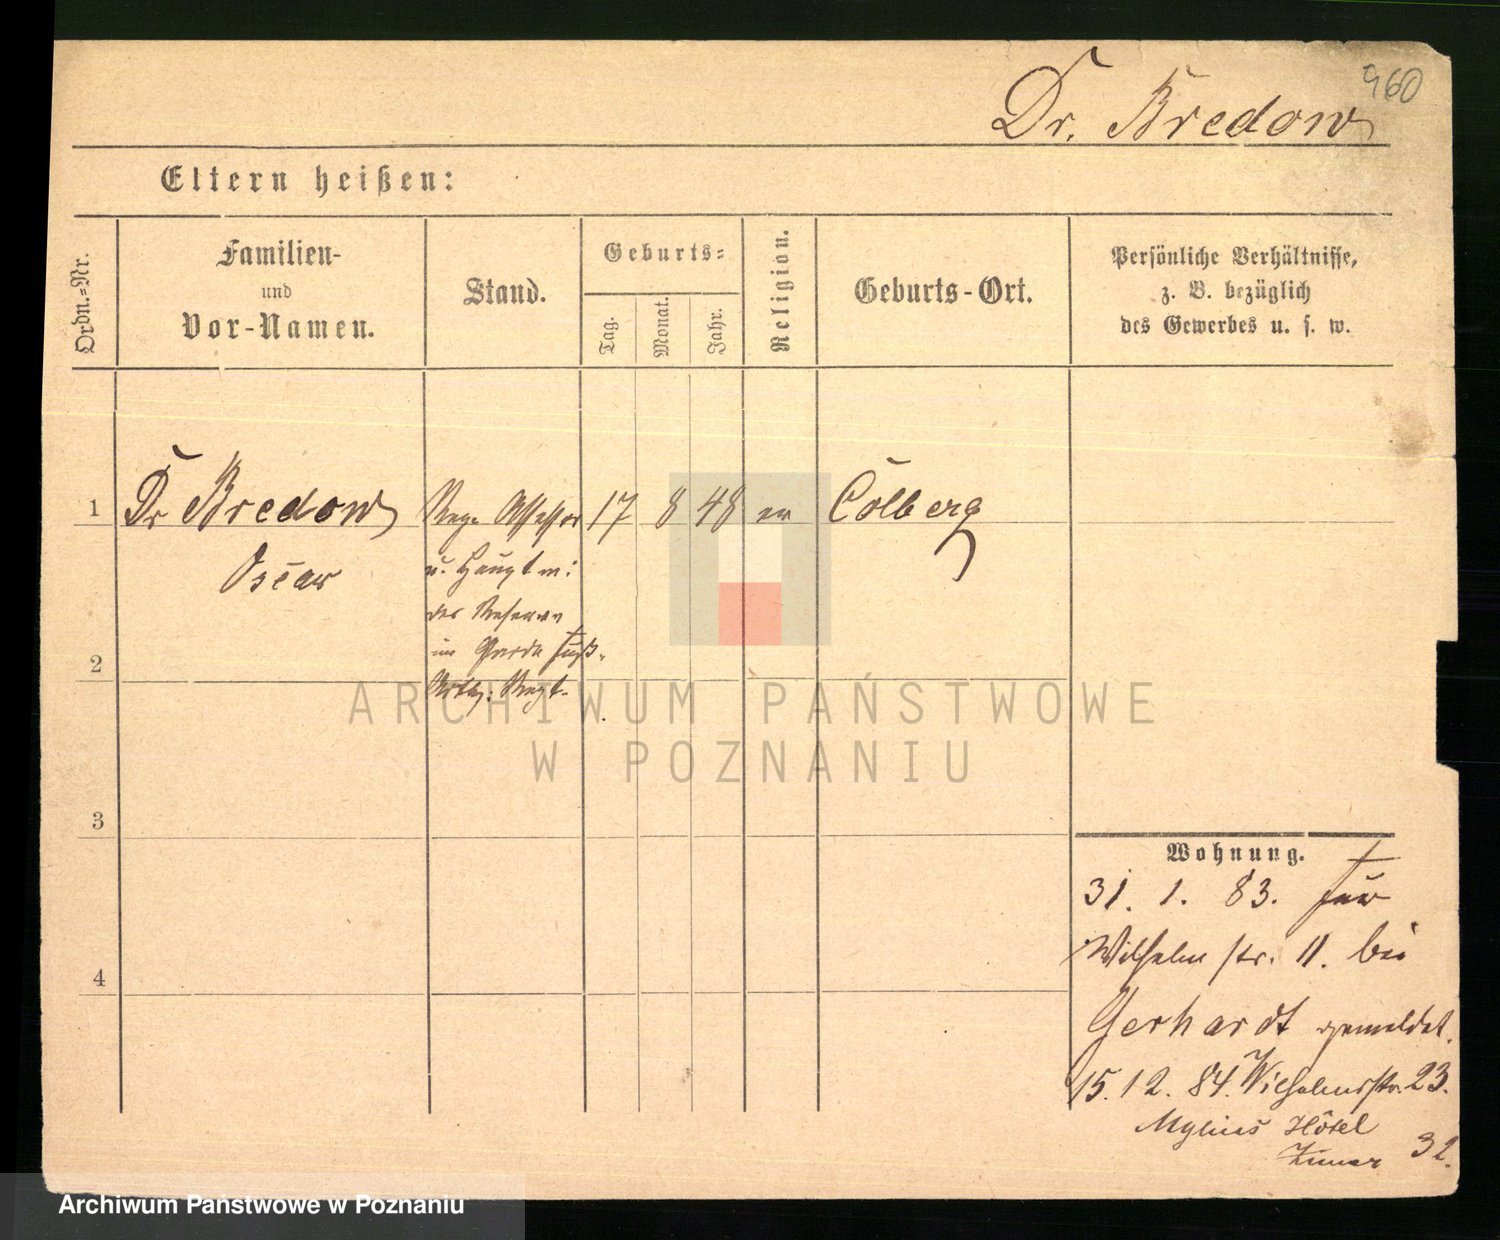 960
Dr. Bredow
Eltern heißen:
Ordn.=Nr.
Familien-
und
Vor-Namen.
Stand.
Geburts=
Tag.
Monat.
Jahr.
Religion.
Geburts-Ort.
Persönliche Verhältnisse,
z. B. bezüglich
des Gewerbes u. s. w.
1 Dr Bredow Reg. Assessor 17 8 48 ev Colberg
Oscar u. Hauptm:
der Reserve
im Garde Fuß-
2
Artly: Regt.
3
4
Wohnung.
31. 1. 83. für
Wilhelm str. 11. bei
Gerhardt gemeldet.
15. 12. 84. Wilhelmsstr. 23.
Mylius Hôtel
32.
ARCHIWUM PAŃSTWOWE
W POZNANIU
Archiwum Państwowe w Poznaniu